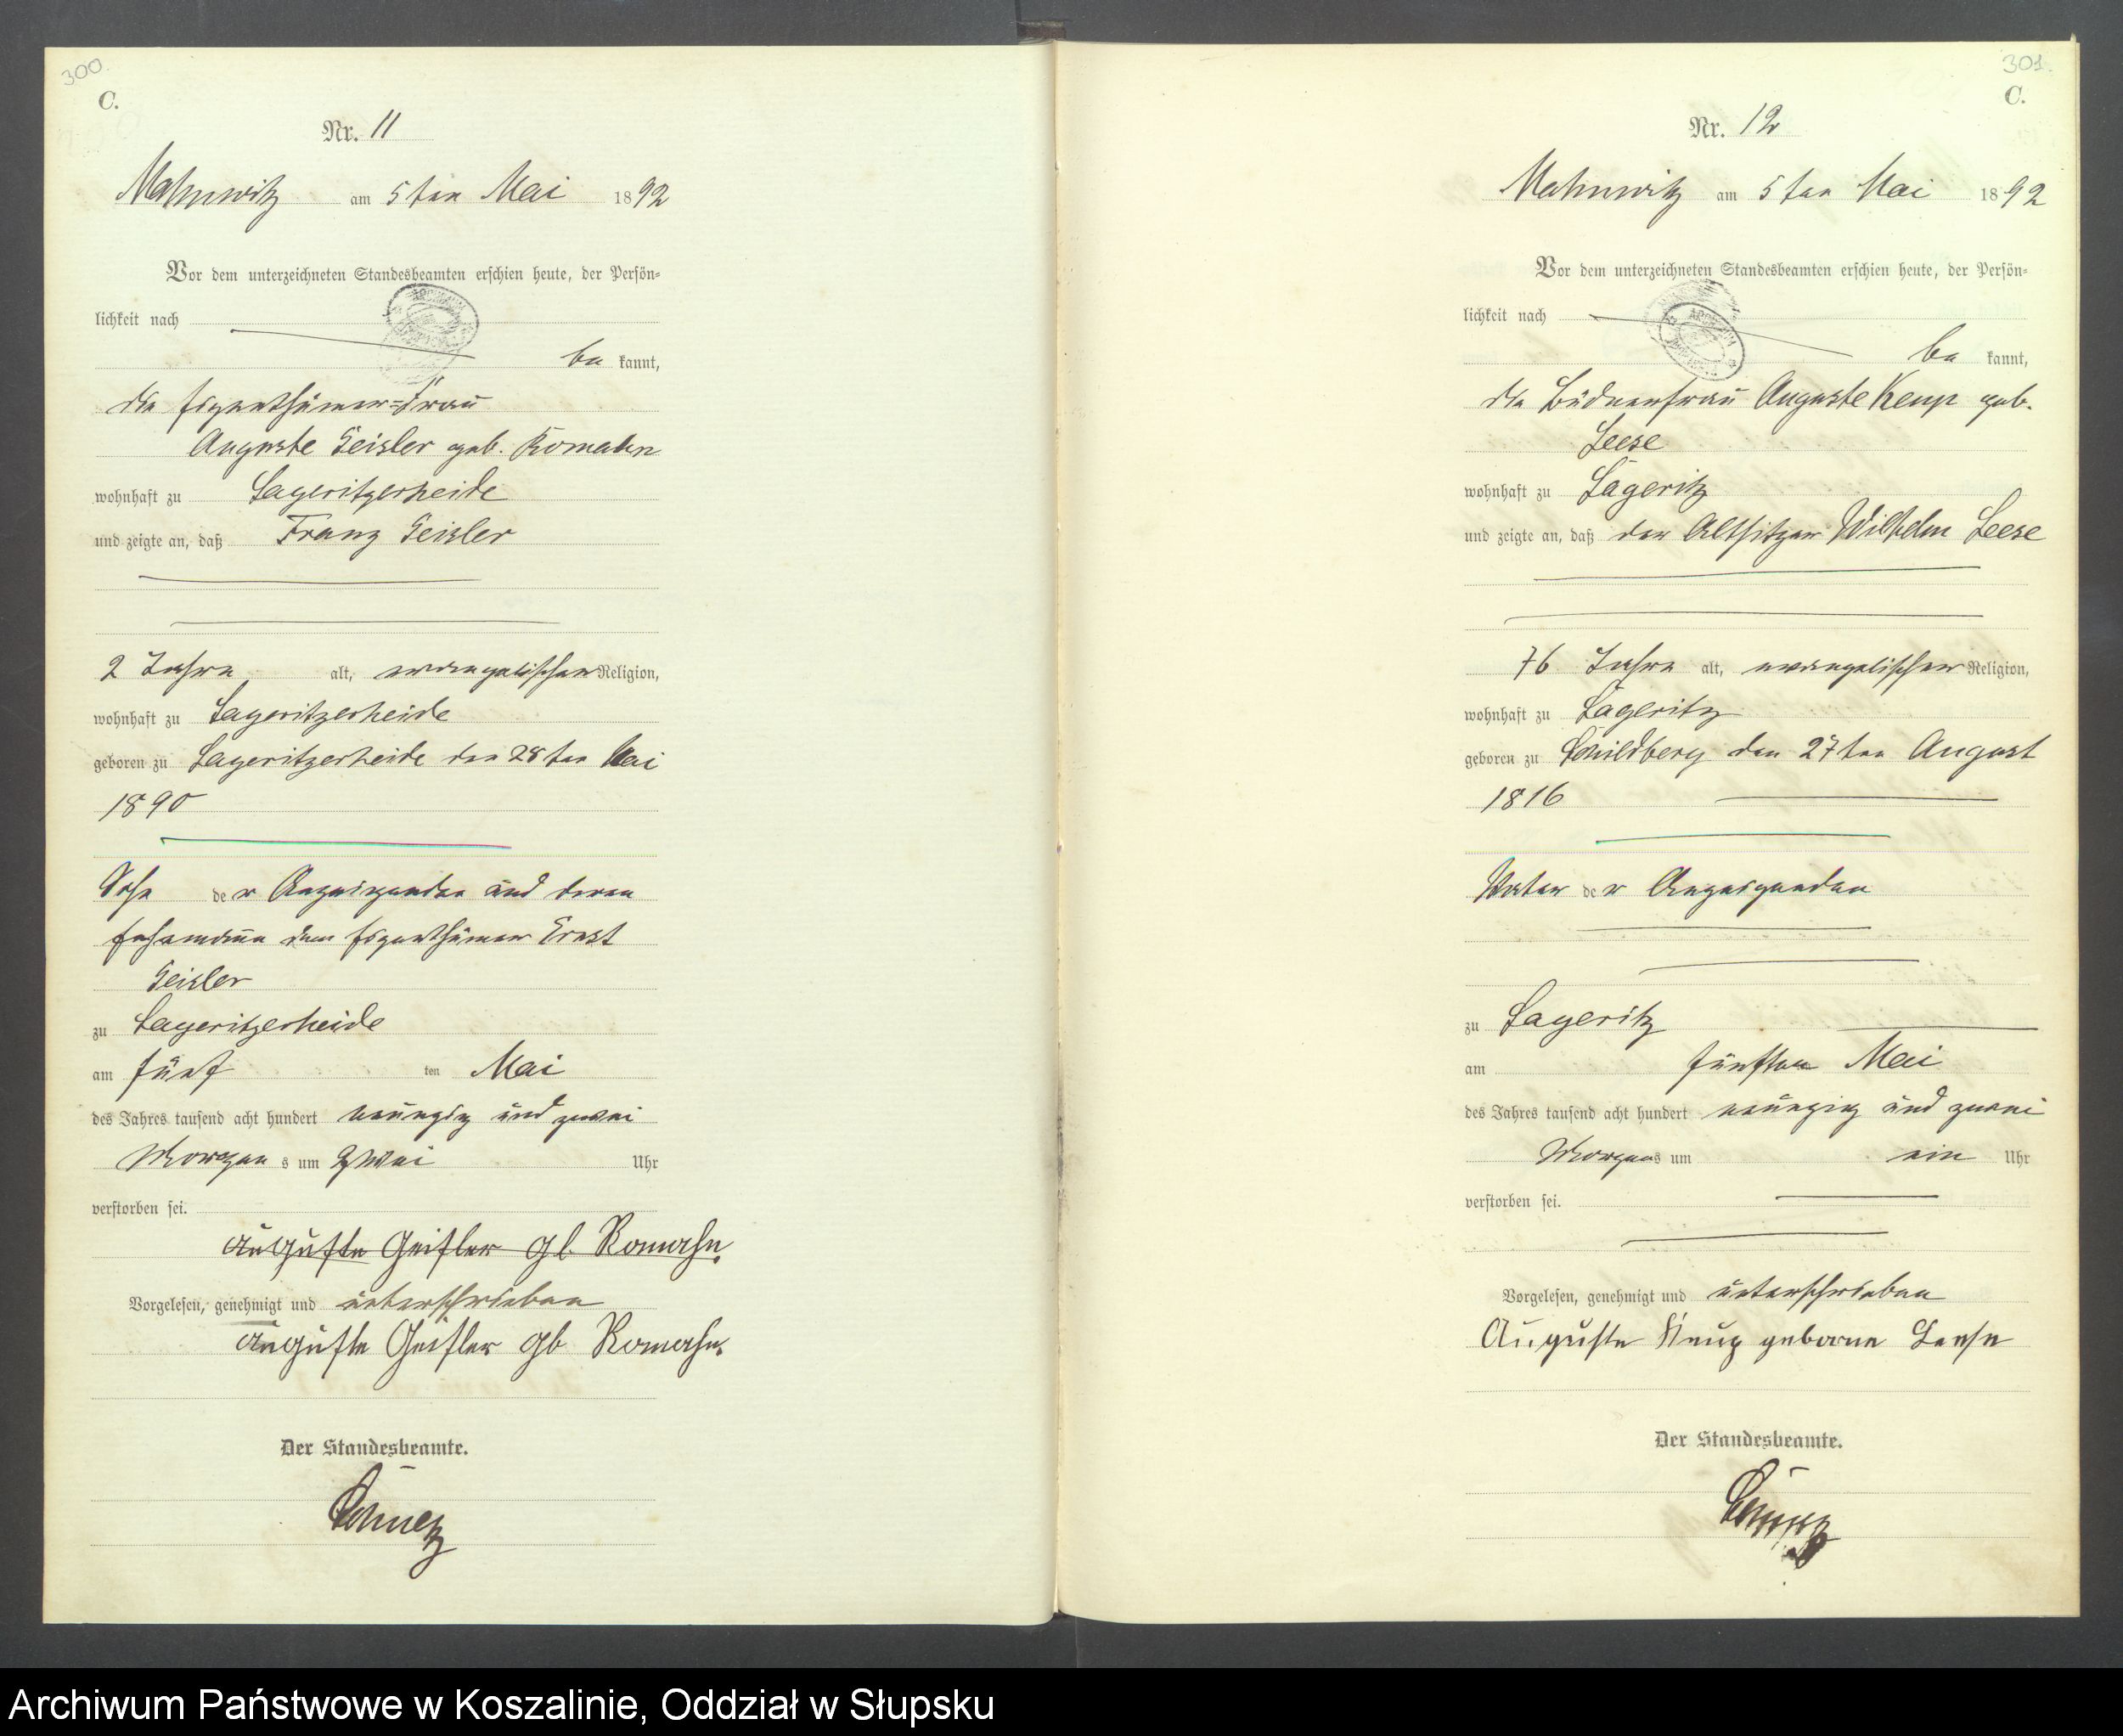 300.
C.
Nr. 11
Mahnwitz am 5ten Mai 1892
Vor dem unterzeichneten Standesbeamten erschien heute, der Persön-
lichkeit nach
be kannt,
die Eigenthümer-Frau
Auguste Geisler geb. Romahn
wohnhaft zu Lageritzerheide
und zeigte an, daß Franz Geisler
2 Jahre alt, evangelischer Religion,
wohnhaft zu Lageritzerheide
geboren zu Lageritzerheide den 28ten Mai
1890
Sohn der Anzeigenden und deren
Ehemann dem Eigenthümer Ernst
Geisler
zu Lageritzerheide
am fünf ten Mai
des Jahres tausend acht hundert neunzig und zwei
Morgens um zwei Uhr
verstorben sei.
Auguste Geisler gb. Romahn
Vorgelesen, genehmigt und unterschrieben
Auguste Geisler gb Romahn
Der Standesbeamte.
301.
C.
Nr. 12
Mahnwitz am 5ten Mai 1892
Vor dem unterzeichneten Standesbeamten erschien heute, der Persön-
lichkeit nach
be kannt,
die Büdnerfrau Auguste geb.
Leese
wohnhaft zu Lageritz
und zeigte an, daß der Altsitzer Wilhelm Leese
76 Jahre alt, evangelischer Religion,
wohnhaft zu Lageritz
geboren zu Schildberg den 27ten August
1816
Vater der Anzeigenden
zu Lageritz
am fünften Mai
des Jahres tausend acht hundert neunzig und zwei
Morgens um ein Uhr
verstorben sei.
Vorgelesen, genehmigt und unterschrieben
Auguste geborne Leese
Der Standesbeamte.
Archiwum Państwowe w Koszalinie, Oddział w Słupsku